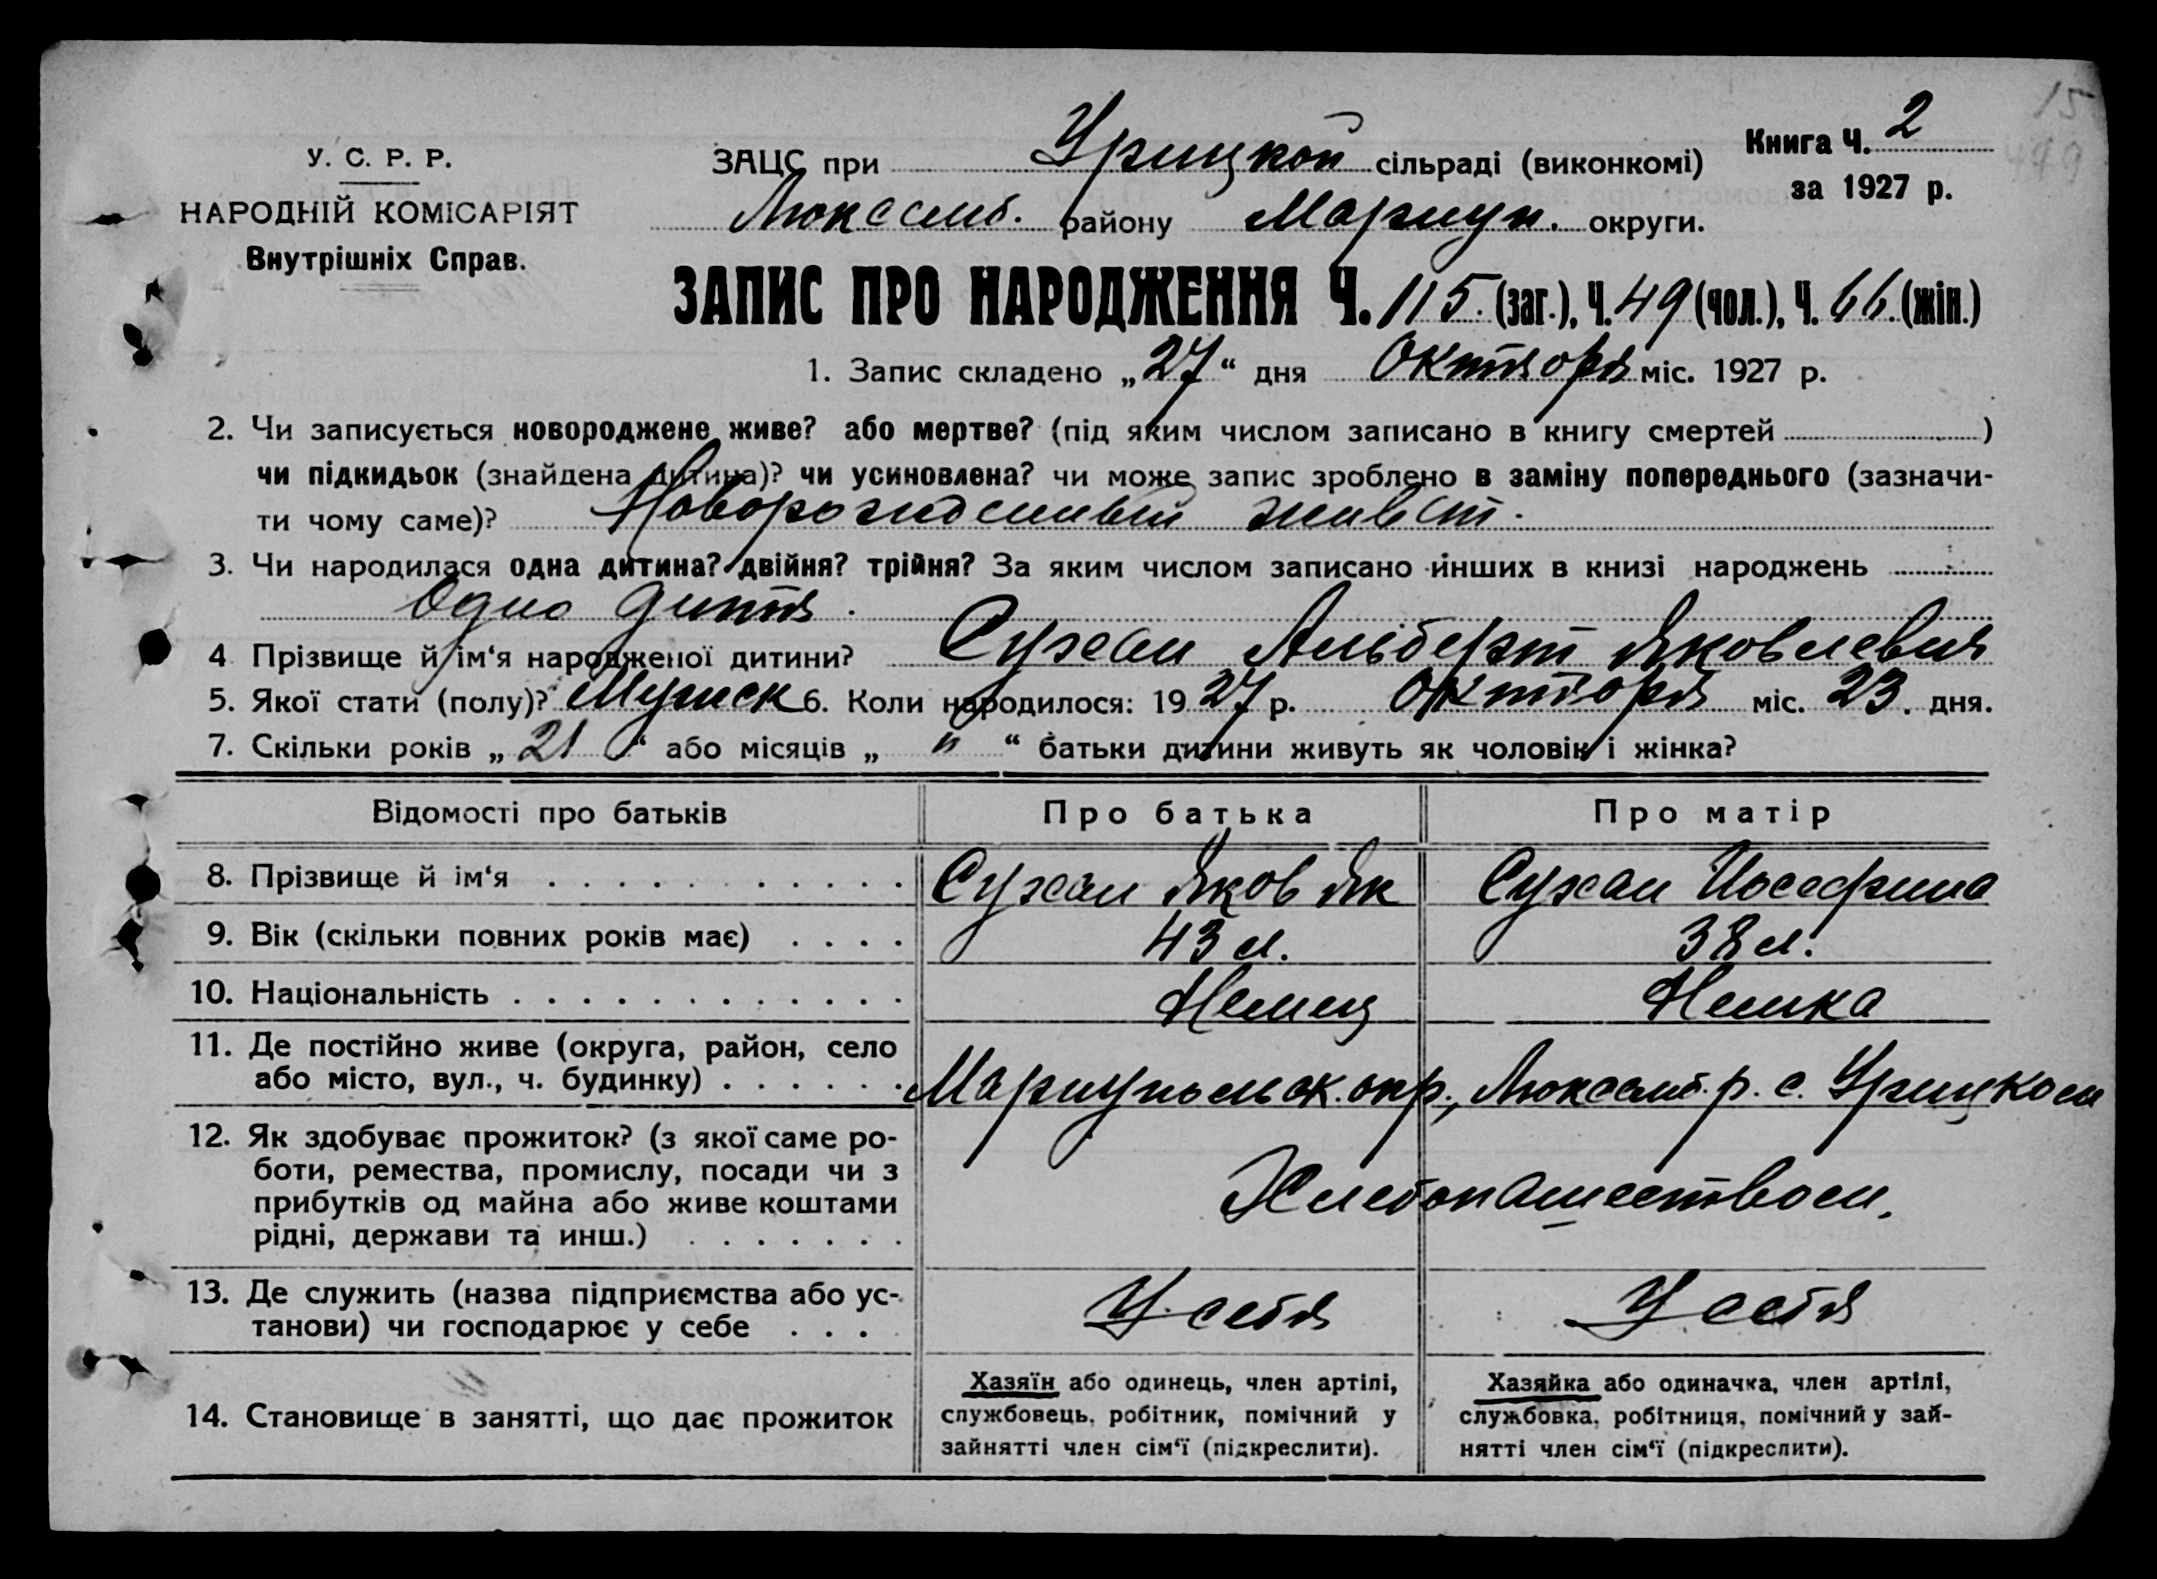 15
499
У. С. Р. Р.
НАРОДНІЙ КОМІСАРІЯТ
Внутрішніх Справ.
ЗАЦС при Урицкой сільраді (виконкомі)
Люксемб. району Мариуп. округи.
Книга Ч. 2
за 1927 р.
ЗАПИС ПРО НАРОДЖЕННЯ Ч. 115 (заг.), Ч. 49 (чол.), Ч. 66 (жін.)
1. Запис складено „27“ дня Октября міс. 1927 р.
2. Чи записується новороджене живе? або мертве? (під яким числом записано в книгу смертей )
чи підкидьок (знайдена дитина)? чи усиновлена? чи може запис зроблено в заміну попереднього (зазначи-
ти чому саме)? Новорожденный живет.
3. Чи народилася одна дитина? двійня? трійня? За яким числом записано инших в книзі народжень
Одно дитя.
4 Прізвище й ім‘я народженої дитини? Сухан Альберт Яковлевич
5. Якої стати (полу)? Мужск 6. Коли народилося: 1927 р. Октября міс. 23. дня.
7. Скільки років „21“ або місяців „ " “ батьки дитини живуть як чоловік і жінка?
Відомості про батьків Про батька Про матір
8. Прізвище й ім‘я Сухан Яков Як Сухан Иосефина
9. Вік (скільки повних років має) 43 л. 38 л.
10. Національність Немец Немка
11. Де постійно живе (округа, район, село
або місто, вул., ч. будинку) Мариупольск. окр., Люксемб. р. с. Урицком
12. Як здобуває прожиток? (з якої саме ро-
боти, ремества, промислу, посади чи з
прибутків од майна або живе коштами
рідні, держави та инш.)
Хлебопашеством.
13. Де служить (назва підприємства або ус-
танови) чи господарює у себе У себя У себя
14. Становище в занятті, що дає прожиток
Хазяїн або одинець, член артілі,
службовець, робітник, помічний у
зайнятті член сім‘ї (підкреслити).
Хазяйка або одиначка, член артілі,
службовка, робітниця, помічний у зай-
нятті член сім‘ї (підкреслити).